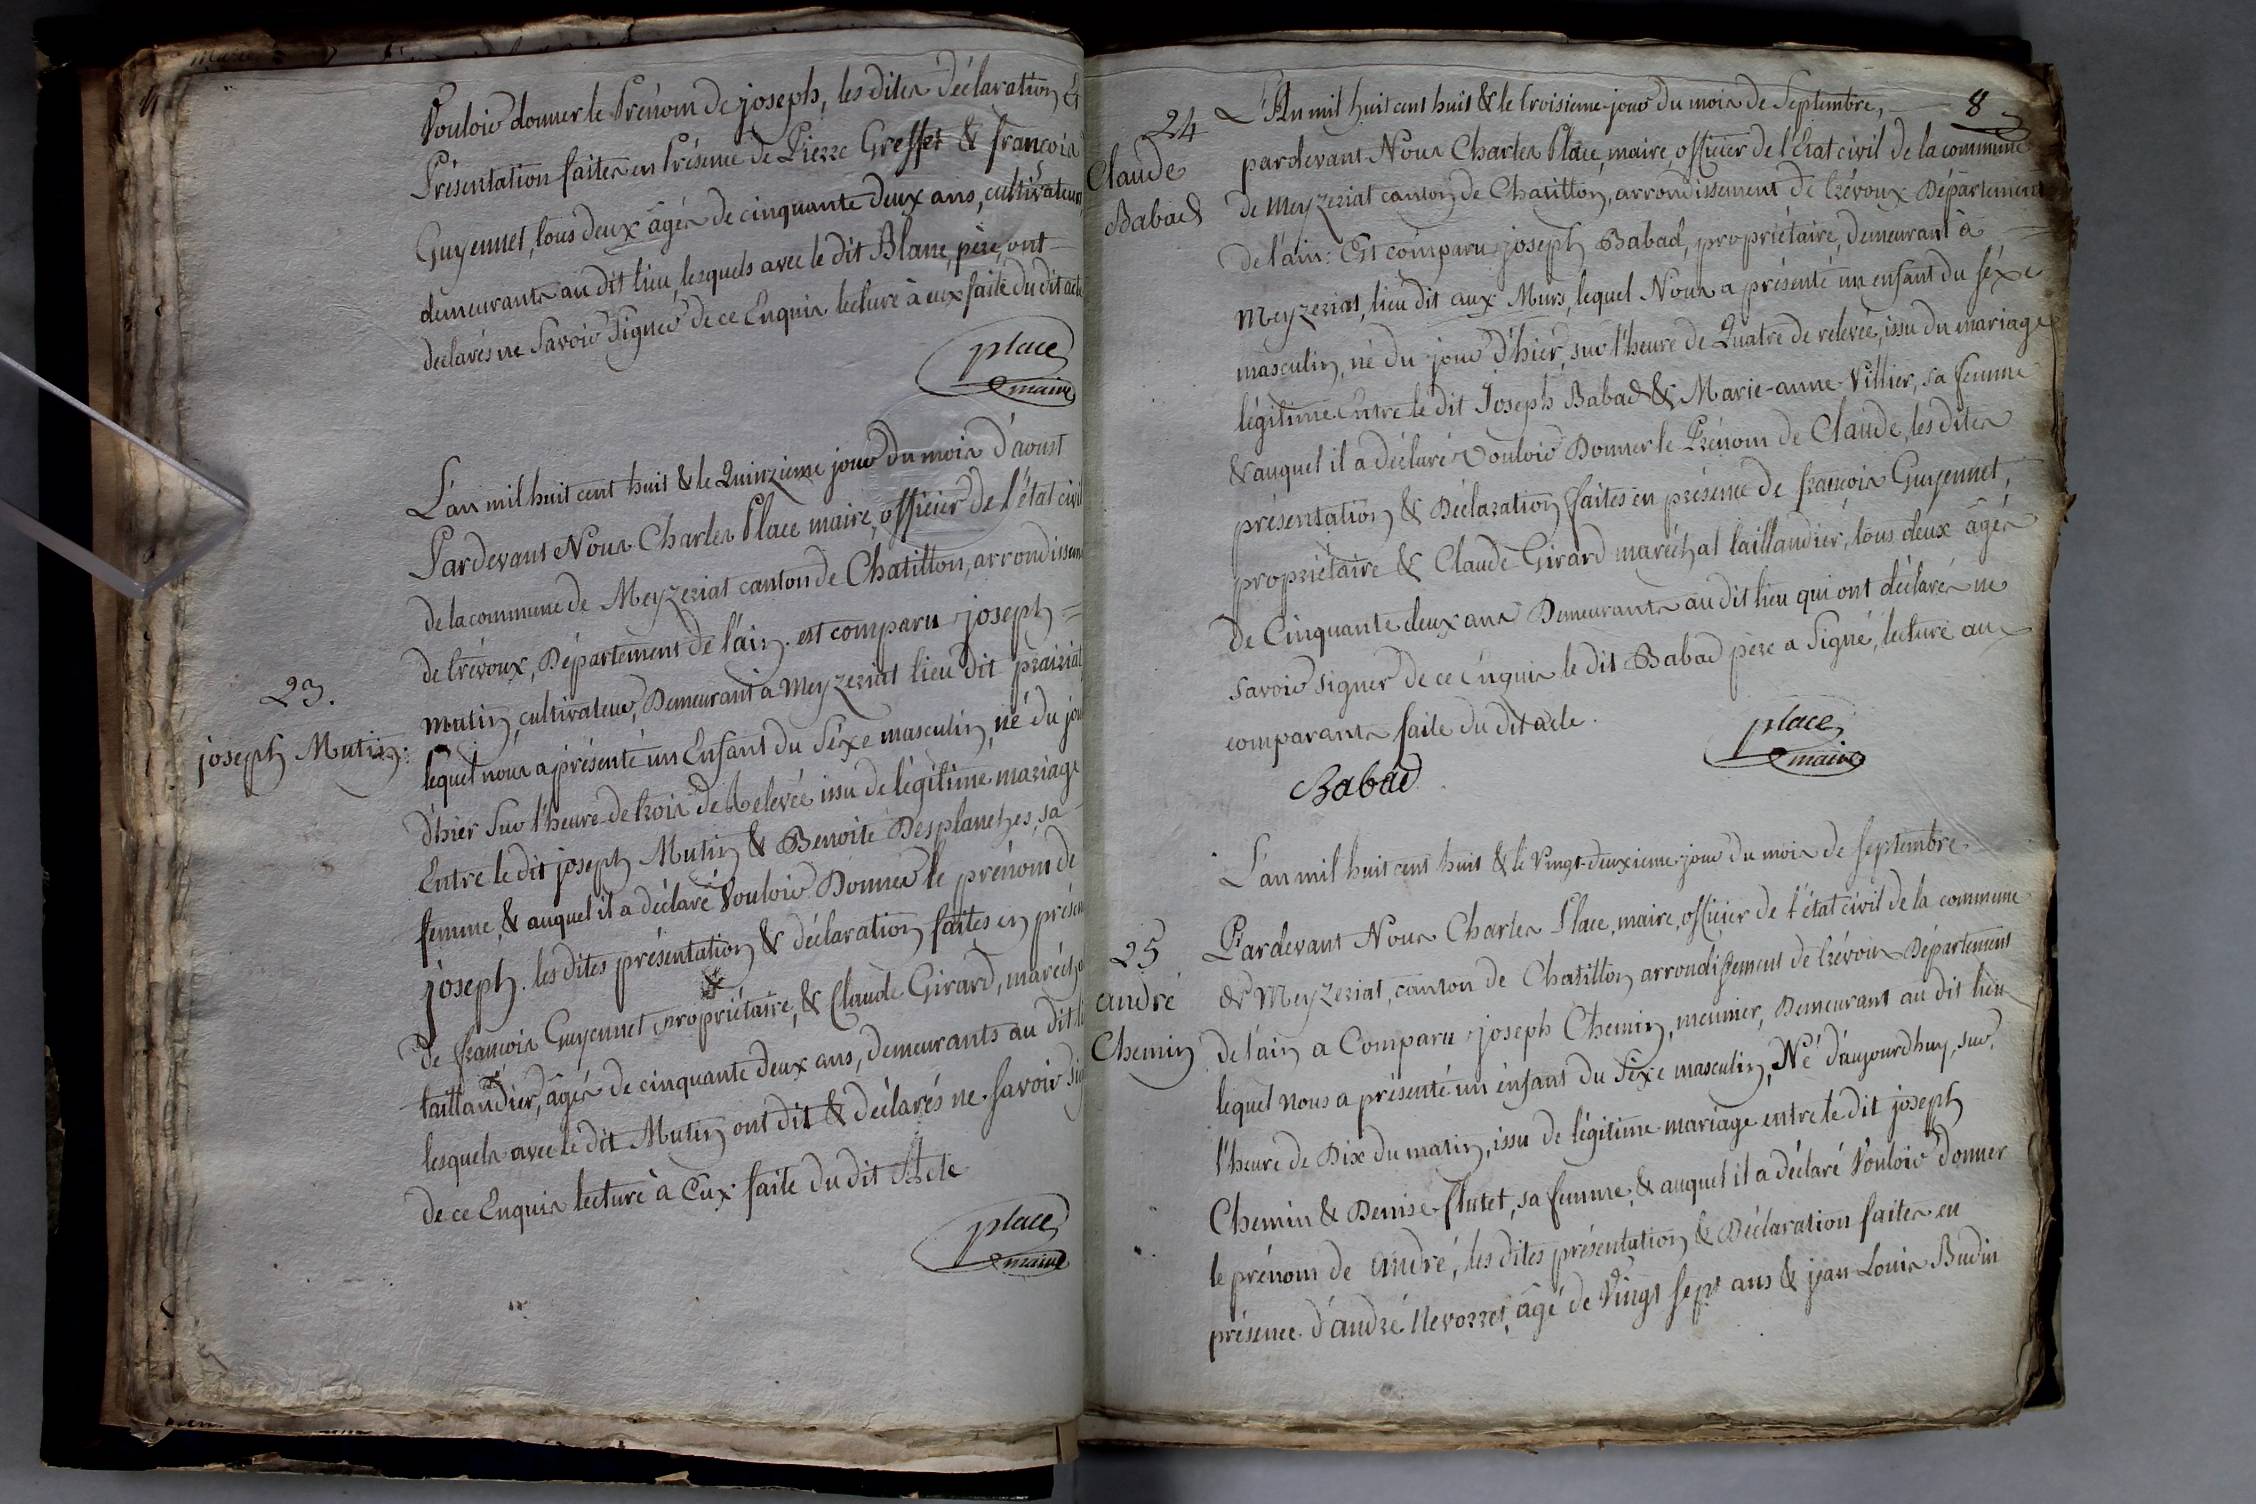 vouloir donner le Prénom de joseph, les dites déclaration Et
Présentation faites en Présence de Pierre Greffet & françois
Guyennet, tous deux âgés de cinquante deux ans, cultivateurs,
demeurants au dit lieu, lesquels avec le dit Blanc, père, ont
declarés ne Savoir Signer de ce Enquis lecture à eux faite du dit acte
place
maire
L'an mil huit cent huit & le Quinzieme jour du mois d'aoust
Pardevant Nous Charles Place maire, officier de l'état civil
de la commune de Meyzeriat canton de Chatillon, arrondissem
de trévoux, Département de l'ain. est comparu joseph =
23.
joseph Mutin:
mutin, cultivateur, Demeurant a Meyzeriat lieu dit prairiat,
lequel nous a présenté un Enfant du Séxe masculin, né du jou
d'hier Sur l'heure de trois de Relevée issu de légitime mariage
Entre le dit joseph Mutin & Benoite Desplanches, sa
femme, & auquel il a déclaré Vouloir Donner le prénom de
joseph. les dites présentation & déclaration faites en présen
de françois Guyennet propriétaire, & Claude Girard, marécha
taillandier, âgés de cinquante deux ans, demeurants au dit li
lesquels avec le dit Mutin ont dit & déclarés ne Savoir Sig
de ce Enquis lecture à Eux faite du dit Acte
place
maire
8
24
Claude
Babad
L'An mil huit cent huit & le troisieme jour du mois de Septembre,
pardevant Nous Charles Place, maire, officier de l'Etat civil de la commune
de Meyzeriat canton de Chatillon, arrondissement de trévoux Département
de l'ain: Est comparu joseph Babad, propriétaire, demeurant à
Meyzeriat, lieu dit aux Murs, lequel Nous a présenté un enfant du séxe
masculin, né du jour d'hier, sur l'heure de Quatre de relevée, issu du mariage
légitime Entre le dit Joseph Babad & Marie-anne Villier, sa femme
& auquel il a déclaré vouloir Donner le Prénom de Claude, les dites
présentation & Déclaration faites en présence de françois Guyennet,
propriétaire & Claude Girard maréchal taillandier, tous deux âgés
de Cinquante deux ans Demeurants au dit lieu qui ont déclarés ne
savoir signer de ce Enquis le dit Babad père a Signé, lecture aux
comparants faite du dit acte.
place
maire
Babad
L'an mil huit cent huit & le vingt-deuxieme jour du mois de septembre
25
andré
Chemin
Pardevant Nous Charles Place, maire, officier de l'état civil de la commune
de Meyzeriat, canton de Chatillon arrondissement de trévoux Département
de l'ain a Comparu joseph Chemin, meunier, Demeurant au dit lieu
lequel nous a présenté un enfant du Séxe masculin, Né d'aujourdhuy, sur
l'heure de Dix du matin, issu de légitime mariage entre le dit joseph
Chemin & Denise flutet, sa femme, & auquel il a déclaré Vouloir donner
le prénom de andré, les dites présentation & Déclaration faites en
présence d'andré Nevorret, âgé de Vingt sept ans & jean-Louis Budin